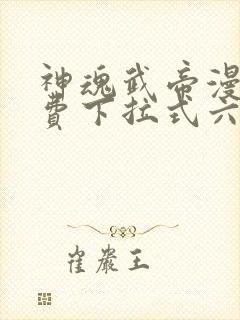 神魂武帝漫
费下拉式六
崔岩王